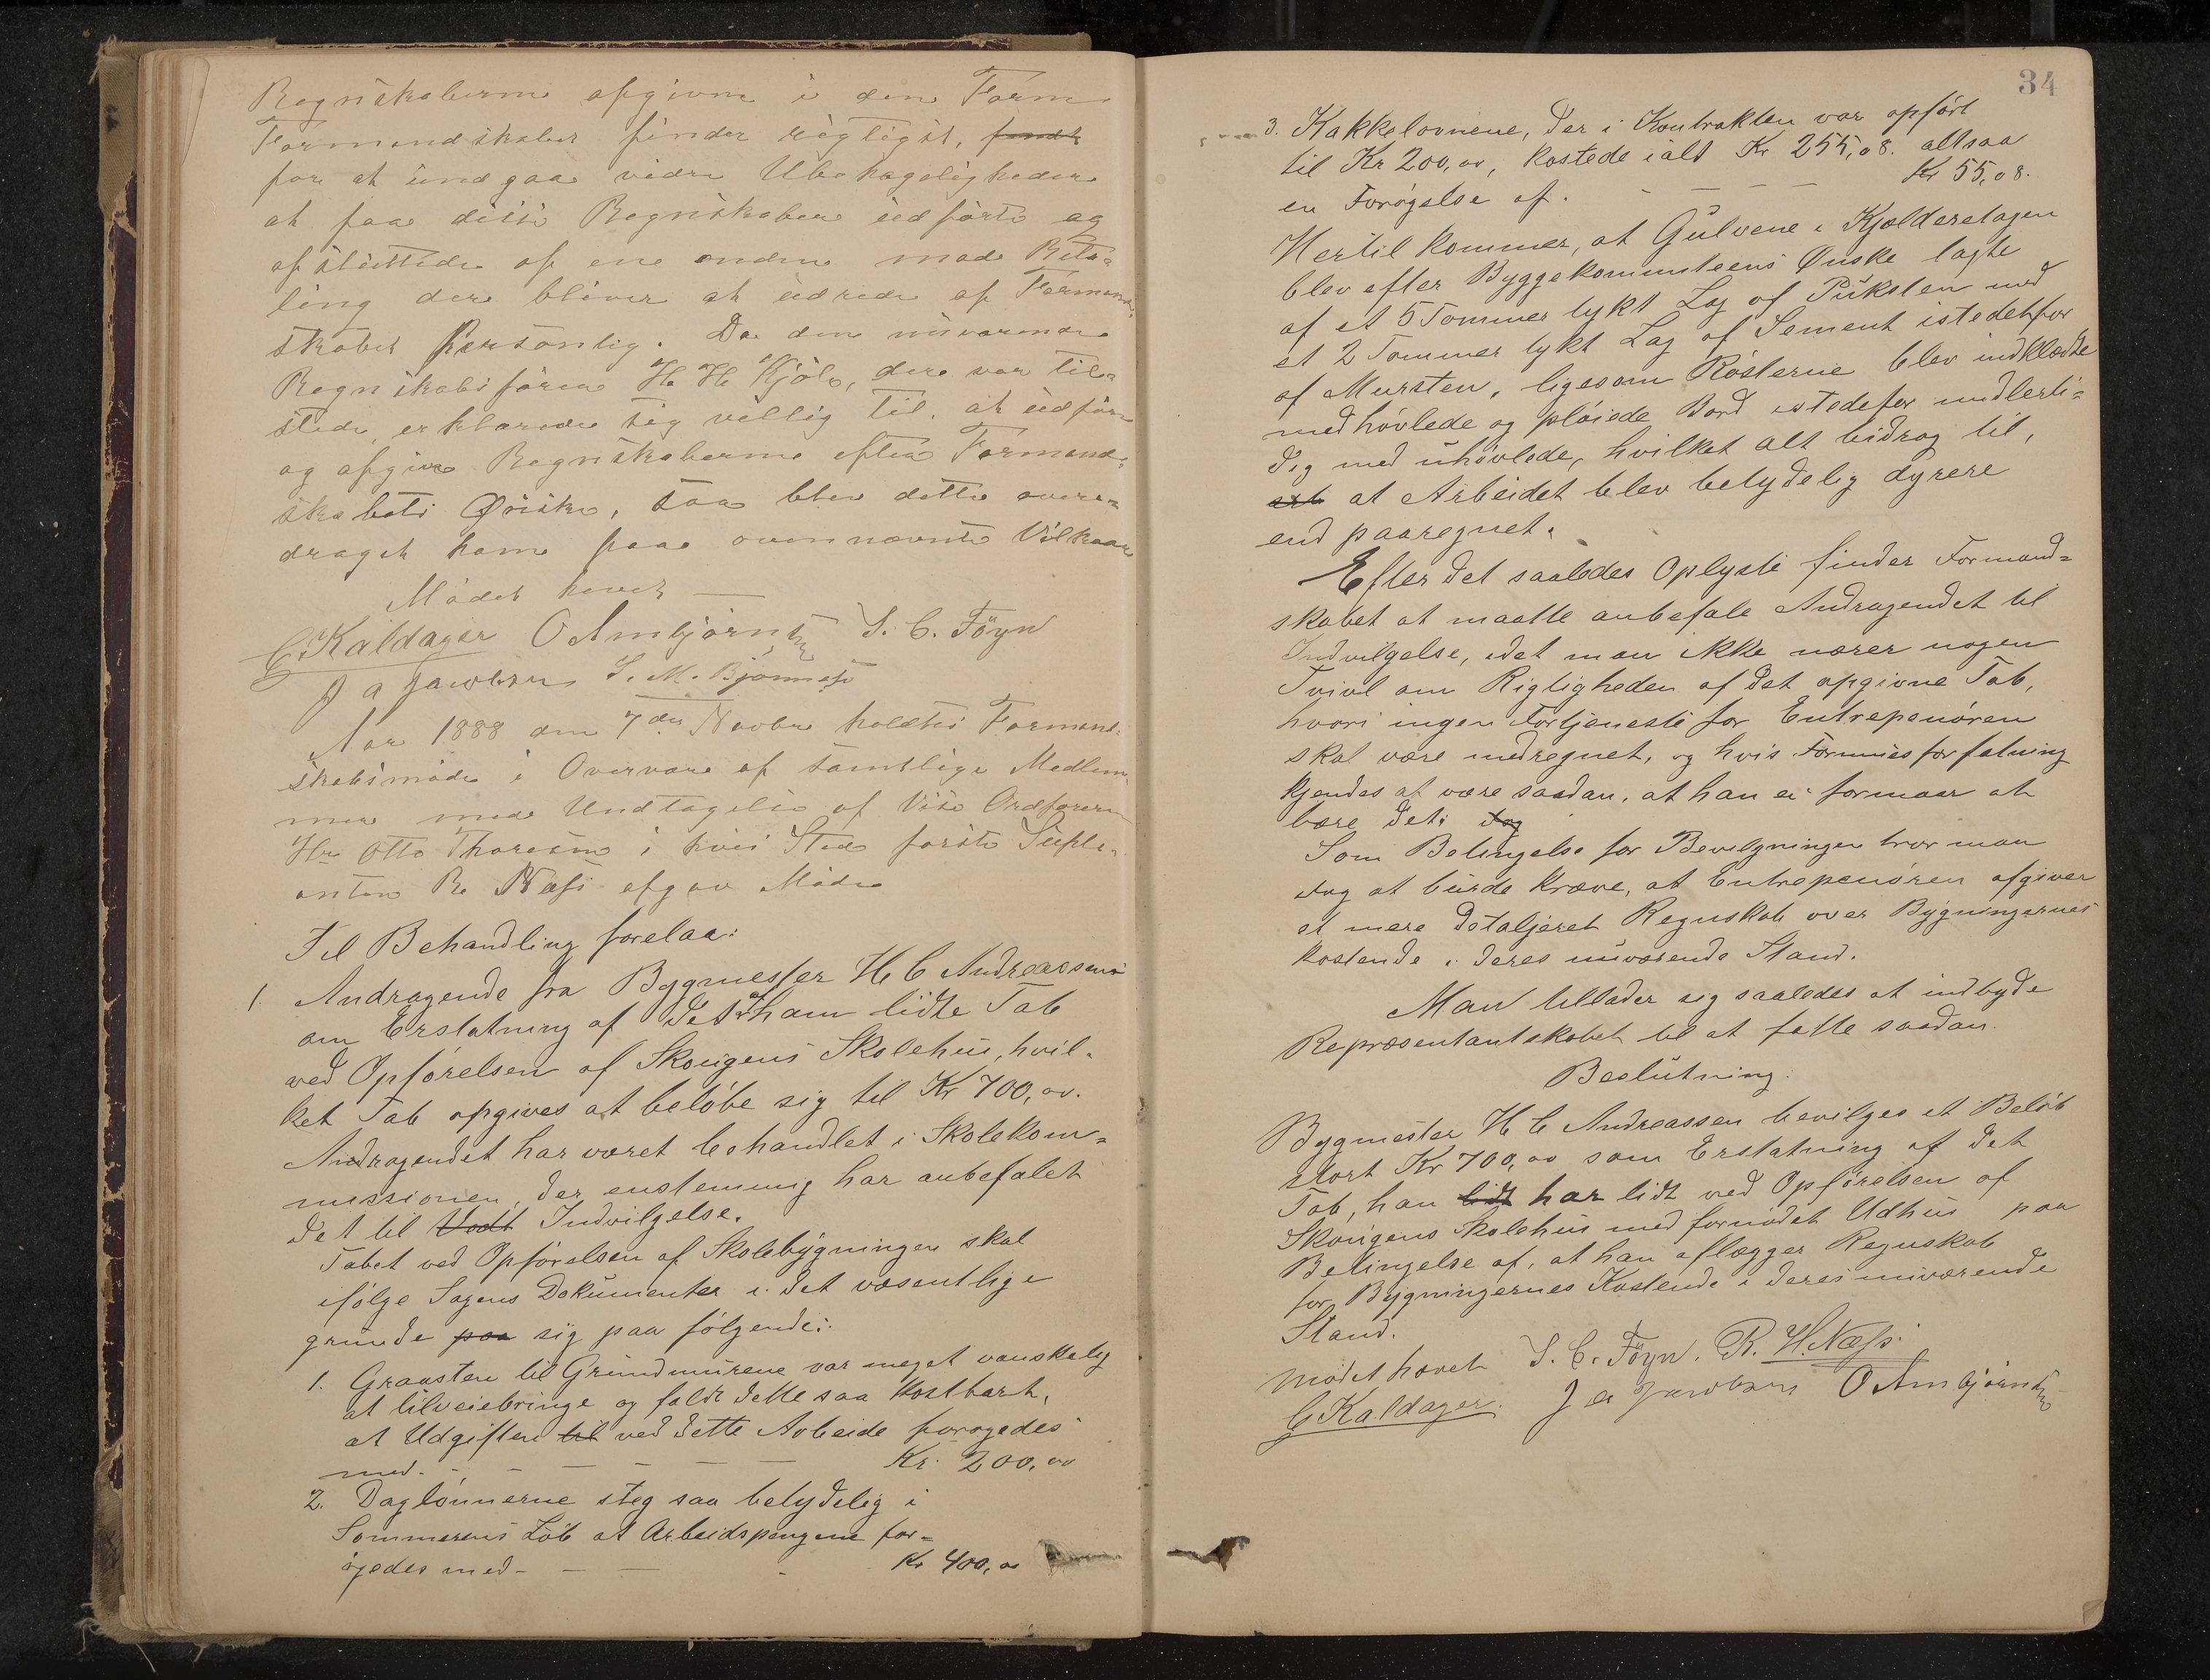 Regnskaberne afgivne i den Form
Formandskabet finder rigtigst, fandt
for at undgaa vidre Ubehageligheder
at faa disse Regnskaber udførte og
afsluttede af en anden mod Beta=
ling der bliver at udrede af Formand=
skabet Personlig. Da den nuværende
Regnskabsfører H. H. Kjøl, der var til=
stede, erklærede sig villig til at udføre
og afgive Regnskaberne efter Formand=
skabets Ønske, saa blev dette over=
draget ham paa ovennævnte Vilkaar
Mødet hævet
C. Kaldager O Ambjørnsen S. C. Föyn
J A Jacobsen S. M. Bjønness
Aar 1888 den 7de Novbr holdtes Formand=
skabsmøde i Overvære af samtlige Medlem
mer med Undtagelse af Vise Ordføreren
Hr Otto Thoresen i hvis Sted første Suple=
anten R. Næss afgav Møde
Til Behandling forelaa:
1. Andragende fra Bygmester H C Andreassen
om Erstatning af det af ham lidte Tab
ved Opførelsen af Skougens Skolehus, hvil=
ket Tab opgives at beløbe sig til Kr 700,00.
Andragendet har været behandlet i Skolekom=
missionen, der enstemmig har anbefalet
det til Vedt Indvilgelse.
Tabet ved Opførelsen af Skolebygningen skal
ifølge Sagens Dokumenter i det væsentlige
grunde paa sig paa følgende:
1. Graasten til Grundmurene var meget vanskelig
at tilveiebringe og faldt dette saa kostbart,
at Udgiften til ved dette Arbeide forøgedes
med - - - - - Kr. 200,00
2. Daglønnerne steg saa betydelig i
Sommerens Løb at Arbeidspengene for=
øgedes med - - - - Kr 400,00
34
3. Kakkelovnene, der i Kontrakten var opført
til Kr 200,00, kostede ialt Kr 255,08. altsaa
en Forøgelse af. - - - - Kr 55,08.
Hertil kommer, at Gulvene i Kjælderetagen
blev efter Byggekommiteens Ønske lagte
af et 5 Tommer tykt Lag af Puksten med
et 2 Tommer tykt Lag af Sement istedetfor
af Mursten, ligesom Rösterne blev indklædte
med høvlede og pløiede Bord istedefor midlerti=
dig med uhøvlede, hvilket alt bidrog til,
at Arbeidet blev betydelig dyrere
end paaregnet.
Efter det saaledes Oplyste finder Formand=
skabet at maatte anbefale Andragendet til
Indvilgelse, idet man ikke nærer nogen
Tvivl om Rigtigheden af det opgivne Tab,
hvori ingen Fortjeneste for Entrepenøren
skal være medregnet, og hvis Formuesforfatning
kjendes at være saadan, at han ei formaar at
bære det. dog
Som Betingelse for Bevilgningen tror man
dog at burde kræve, at Entrepenøren afgiver
et mere detaljeret Regnskab over Bygningernes
kostende i deres nuværende Stand.
Man tillader sig saaledes at indbyde
Repræsentantskabet til at fatte saadan
Beslutning.
Bygmester H C Andreassen bevilges et Beløb
stort Kr 700,00 som Erstatning af det
Tab, han lidt har lidt ved Opførelsen af
Skougens Skolehus med fornødet Udhus paa
Betingelse af, at han aflægger Regnskab
for Bygningernes Kostende i deres nuværende
Stand.
Mødet hævet S. C. Föyn. R. H. Næss.
C Kaldager. J A Jacobsen O Ambjørnsen